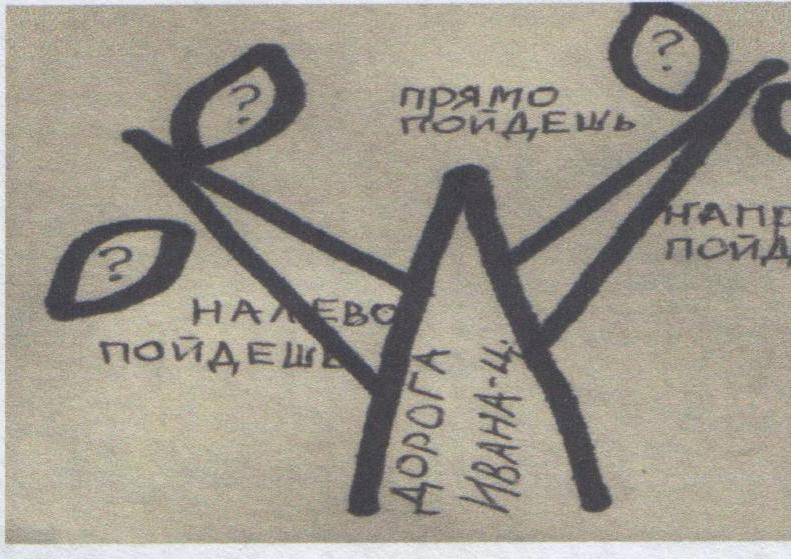 ?
?
ПРЯМО
ПОЙДЕШЬ
?
НАЛЕВО
ПОЙДЕШЬ
ДОРОГА
ИВАНА-Ц.